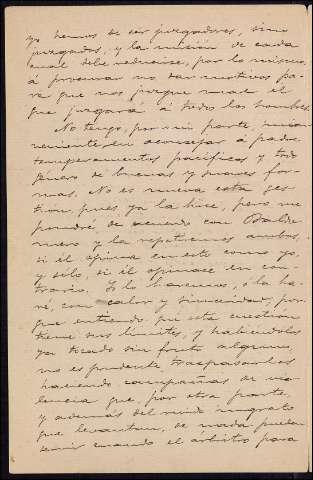 no hemos de ser juzgadores, sino
juzgados, y la misión de cada
cual debe reducirse, por lo mismo,
á procurar no dar motivos pa-
ra que nos juzgue mal el
que juzgará á todos los hombres.
No tengo, por mi parte, incon-
veniente en aconsejar á padre
temperamentos pacíficos y todo
género de buenas y suaves for-
mas. No es nueva esta ges-
tión, pues ya la hice, pero me
pondré de acuerdo con Balde-
mero y la repetiremos ambos,
si él opina en esto como yo,
y sólo, si él opinase en con-
trario. Y lo haremos, ó lo ha-
ré, con calor y sinceridad, por-
que entiendo que esta cuestión
tiene sus límites, y habiéndolos
ya tocado sin fruto alguno,
no es prudente traspasarlos
haciendo campañas de vio-
lencia que, por otra parte,
y además del ruido ingrato
que levantan, de nada pueden
servir cuando el árbitro para